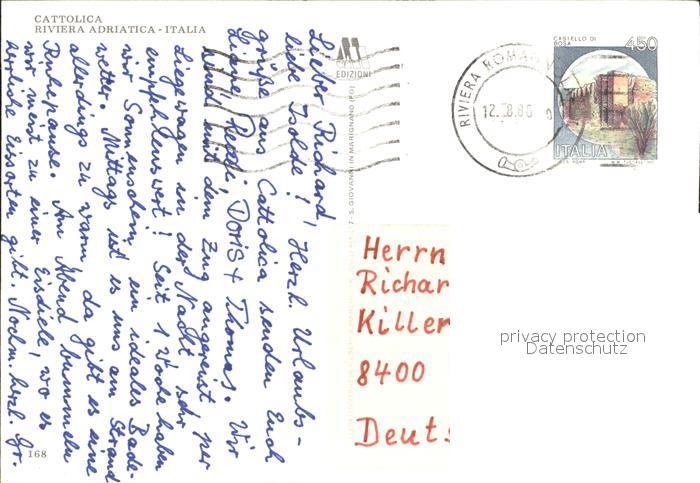 CATTOLICA
RIVIERA ADRIATICA - ITALIA
Lieber Richard,
liebe Isolde! Herzl. Urlaubs-
grüße aus Cattolica senden Euch
Doris + Thomas. Wir
sind mit dem Zug angereist. per
Liegewagen in der Nacht sehr
empfehlenswert! Seit 1 Woche haben
wir Sonnenschein, ein ideales Bade-
wetter. Mittags ist es uns am Strand
allerdings zu warm, da gibt es eine
Ruhepause. Am Abend bummeln
wir meist zu einer Eisdiele, wo es
herrliche Eissorten gibt. Nochm. herzl. Gr.
168
EDIZIONI
S. GIOVANNI IN MARIGNANO (FO)
RIVIERA ROMAG
12. 8.86
CASTELLO DI
ROSA
450
ITALIA
Herrn
Richar
Killer
8400
Deut
privacy protection
Datenschutz